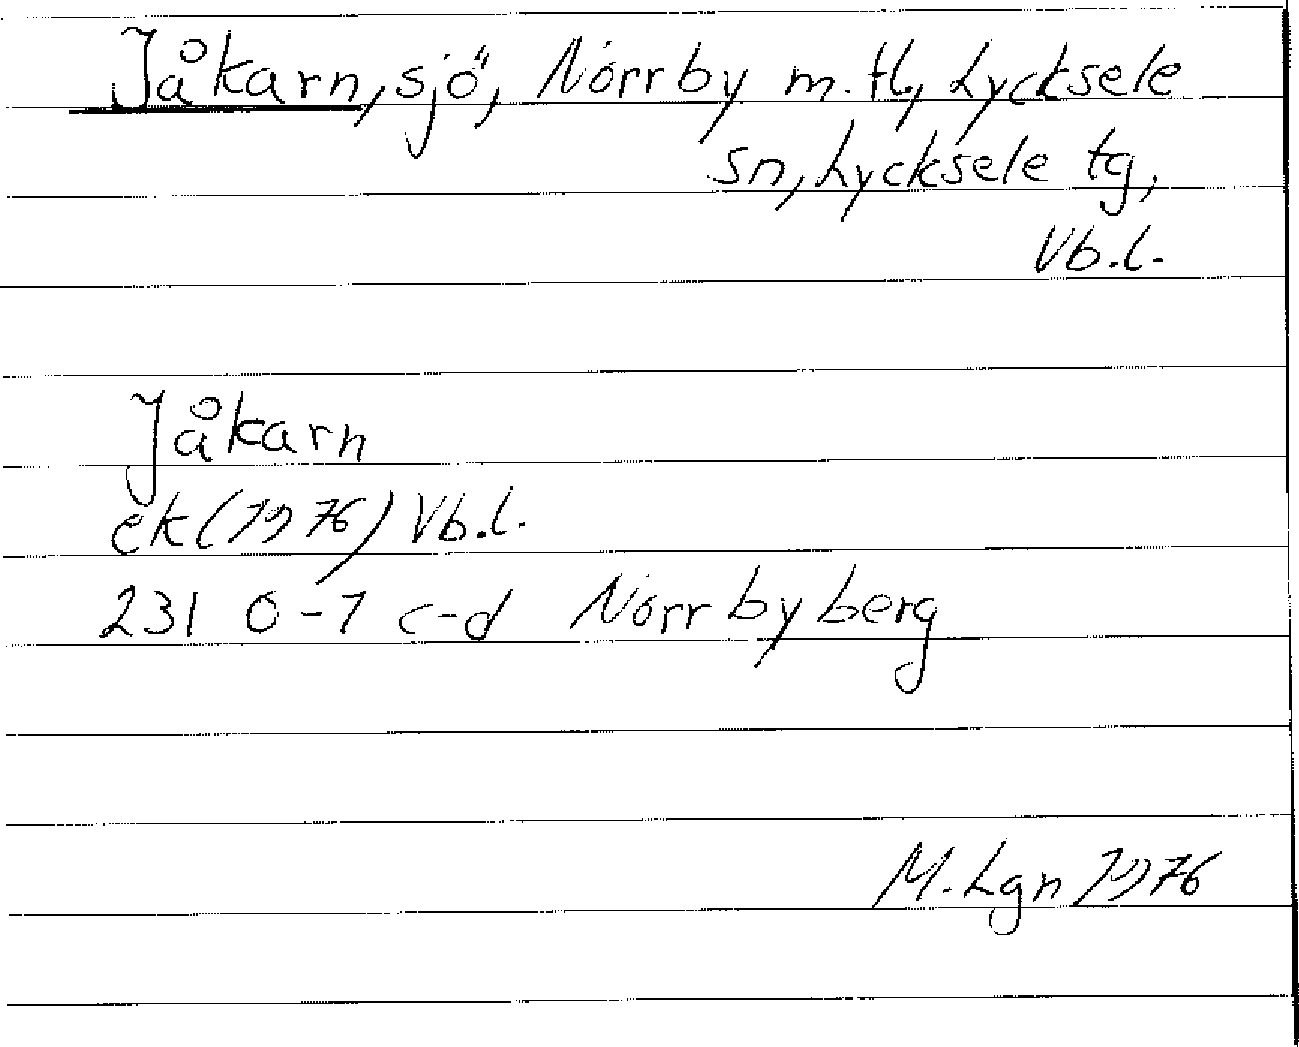 Jåkarn, sjö, Norrby m. fl., Lycksele
sn, Lycksele tg,
Vb.l.
Jåkarn
ek (1976) Vb.l.
231 0-1 c-d Norrbyberg
M. Lgn 1976